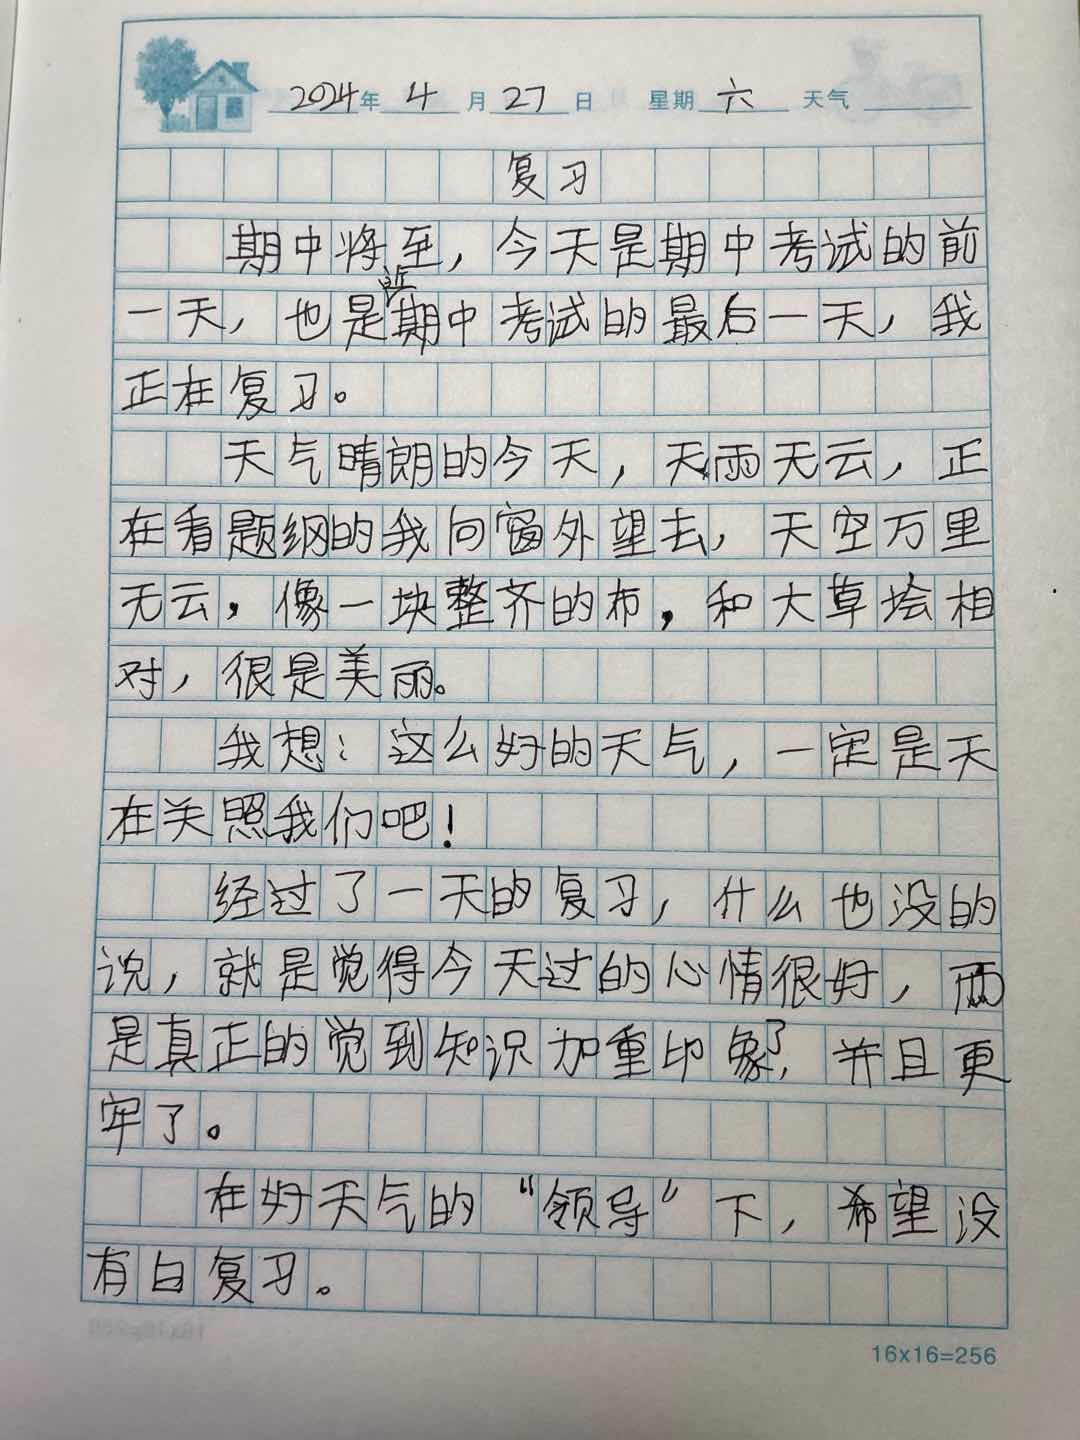 2024年 4 月 27 日 星期 六 天气
复习
期中将至，今天是期中考试的前
一天，也是距期中考试的最后一天，我
正在复习。
天气晴朗的今天，天雨无云，正
在看题纲的我向窗外望去，天空万里
无云，像一块整齐的布，和大草绘相
对，很是美丽。
我想：这么好的天气，一定是天
在关照我们吧！
经过了一天的复习，什么也没的
说，就是觉得今天过的心情很好，而
是真正的觉到知识加重印象了，并且更
牢了。
在好天气的“领导”下，希望没
有白复习。
16x16=256